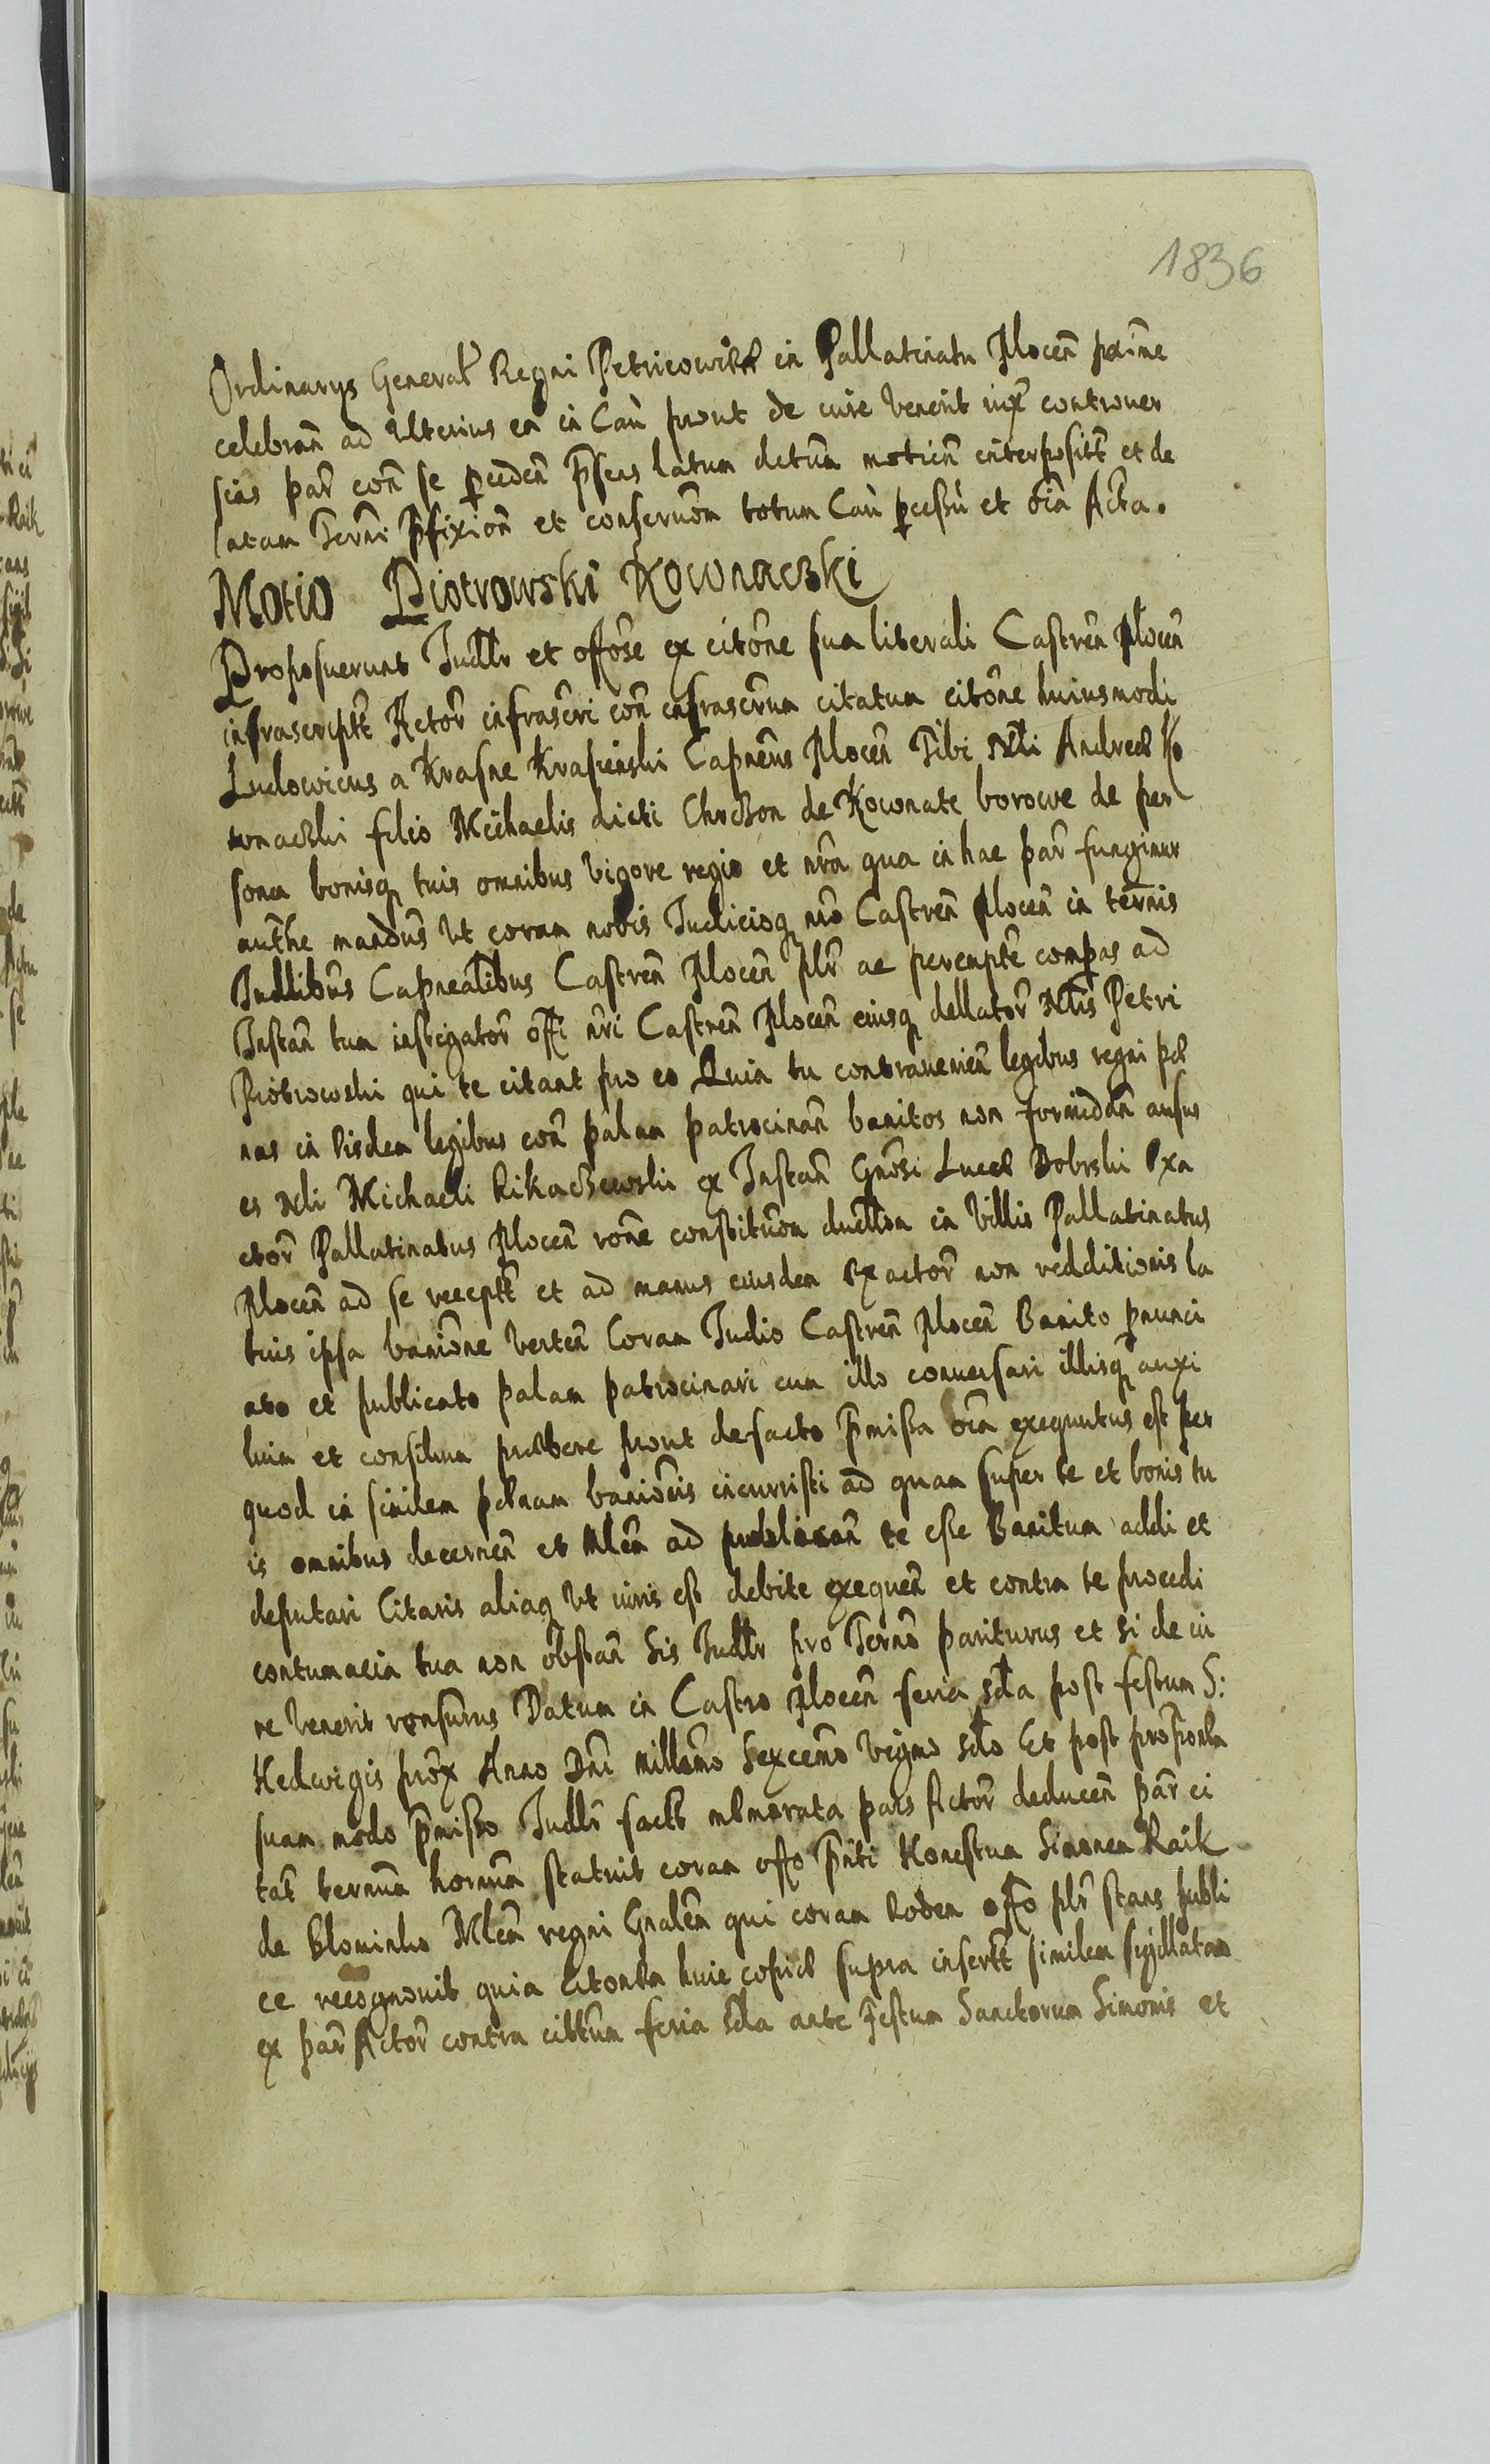 1836
Ordinarys General Regni Petricowien in Pallatinatu Plocen pxime
celebran ad ulterius ea in Cau prout de iure venerit iux controuer
sias par con se pceden pntens latum dctum motion interposit et de
latam Termi pfixion et conseruon totum Cau pcessu et oia Acta.
Motio Piotrowski Kownaczki
Proposuerunt Judlr et offose ex citone sua literali Castren Plocen
infrascript Actor infrascri con infrascrum citatum citone huiusmodi
Ludowicus a Krasne Krasienski Capneus Plocen Tibi Nli Andreæ Ko
wnaczki filio Michaelis dicti Chrczon de Kownate borowe de per
sona bonisq tuis omnibus vigore regio et nra qua in hac par fungimur
authe mandus ut coram nobis Judicioq nro Castren Plocen in termis
Judlibus Capnealibus Castren Plocen plr ac perempte compas ad
Instan tam instigator offi nri Castren Plocen eiusq dellator Nlis Petri
Piotrowski qui te citant pro eo Quia tu contraueniem legibus regni pæ
nas in eisdem legibus con palam patrocinan banitos non formidan ausus
es Nli Michaeli Rikaczewski ex Instan Gnosi Lucæ Dobrski Exa
ctor Pallatinatus Plocen rone constituon ductlon in Villis Pallatinatus
Plocen ad se recept et ad manus eiusdem Exactor non redditionis la
tuis ipsa banione verten Coram Judio Castren Plocen Banito pnunci
ato et publicato palam patrocinari cum illo conuersari illisq auxi
lium et consilium præbere prout de facto pmissa oia exequutus est per
quod in similem pænam banionis incurristi ad quam super te et bonis tu
is omnibus decernen et Mlem ad publican te esse Banitum addi et
deputari Citaris aliaq ut iuris est debite exequen et contra te procedi
contumacia tua non obstan Sis Judlr pro Termo pariturus et si de iu
re venerit ronsurus Datum in Castro Plocen feria sda post festum S:
Hedwigis prox Anno Dni Millemo Sexcemo vigmo sdo Et post propontam
suam modo pmisso Judlr fact mlmorata pars Actor deducen par ci
tat termum hornum statuit coram offo pnti Honestum Simonem Raik
de Blominko Mlem regni Gnalem qui coram eodem offo plr stans publi
ce recognouit quia citonem huic copiæ supra insert similem sigillatam
ex par Actor contra cittum feria sda ante festum Sanctorum Simonis et